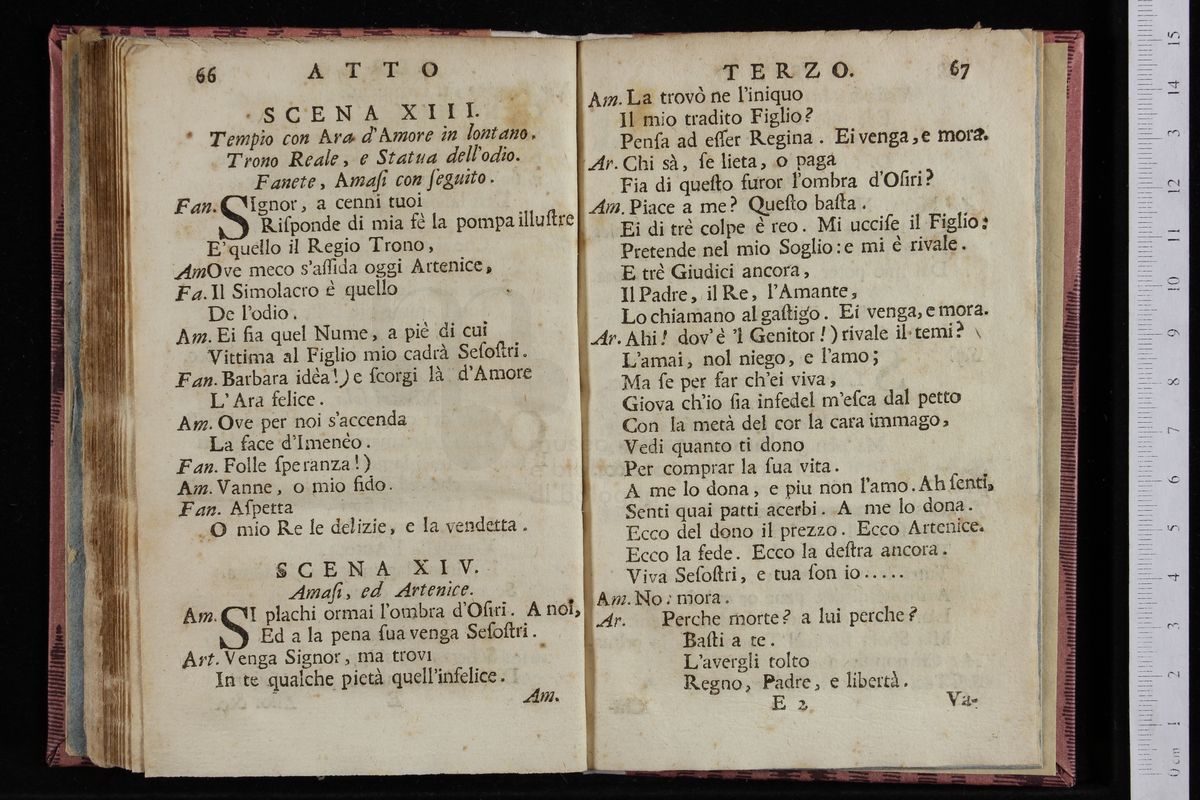 66 ATTO
SCENA XIII.
Tempio con Ara d'Amore in lontano.
Trono Reale, e Statua dell'odio.
Fanete, Amaſi con ſeguito.
Fan. SIgnor, a cenni tuoi
Riſponde di mia fè la pompa illuſtre
E' quello il Regio Trono,
Am Ove meco s'aſſida oggi Artenice,
Fa. Il Simolacro è quello
De l'odio.
Am. Ei fia quel Nume, a piè di cui
Vittima al Figlio mio cadrà Seſoſtri.
Fan. Barbara idèa!) e ſcorgi là d'Amore
L'Ara felice.
Am. Ove per noi s'accenda
La face d'Imenèo.
Fan. Folle ſperanza!)
Am. Vanne, o mio fido.
Fan. Aſpetta
O mio Re le delizie, e la vendetta.
SCENA XIV.
Amaſi, ed Artenice.
Am. SI plachi ormai l'ombra d'Oſiri. A noi,
Ed a la pena ſua venga Seſoſtri.
Art. Venga Signor, ma trovi
In te qualche pietà quell'infelice.
Am.
TERZO. 67
Am. La trovò ne l'iniquo
Il mio tradito Figlio?
Penſa ad eſſer Regina. Ei venga, e mora.
Ar. Chi sà, ſe lieta, o paga
Fia di queſto furor l'ombra d'Oſiri?
Am. Piace a me? Queſto baſta.
Ei di trè colpe è reo. Mi ucciſe il Figlio:
Pretende nel mio Soglio: e mi è rivale.
E trè Giudici ancora,
Il Padre, il Re, l'Amante,
Lo chiamano al gaſtigo. Ei venga, e mora.
Ar. Ahi! dov'è 'l Genitor!) rivale il temi?
L'amai, nol niego, e l'amo;
Ma ſe per far ch'ei viva,
Giova ch'io ſia infedel m'eſca dal petto
Con la metà del cor la cara immago,
Vedi quanto ti dono
Per comprar la ſua vita.
A me lo dona, e piu non l'amo. Ah ſenti,
Senti quai patti acerbi. A me lo dona.
Ecco del dono il prezzo. Ecco Artenice.
Ecco la fede. Ecco la deſtra ancora.
Viva Seſoſtri, e tua ſon io.....
Am. No: mora.
Ar. Perche morte? a lui perche?
Baſti a te.
L'avergli tolto
Regno, Padre, e libertà.
E 2 Va-
0 cm 1 2 3 4 5 6 7 8 9 10 11 12 13 14 15